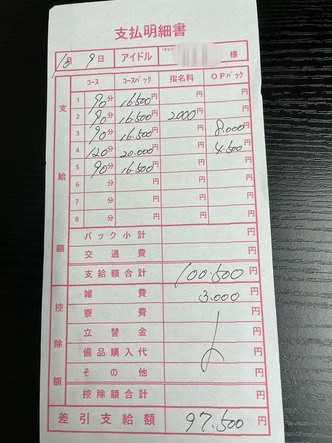 支払明細書
10月9日 アイドル 様
コース コースバック 指名料 OPバック
支給額
1 90分 16.500円 円 円
2 90分 16.500円 2000円 円
3 90分 16.500円 円 8.000円
4 120分 20.000円 円 4.500円
5 90分 16.500円 円 円
6 分 円 円 円
7 分 円 円 円
8 分 円 円 円
バック小計 円
交通費 円
支給額合計 100.500円
控除額
雑費 3.000円
寮費 円
立替金 円
備品購入代 円
その他 円
控除額合計 円
差引支給額 97.500円